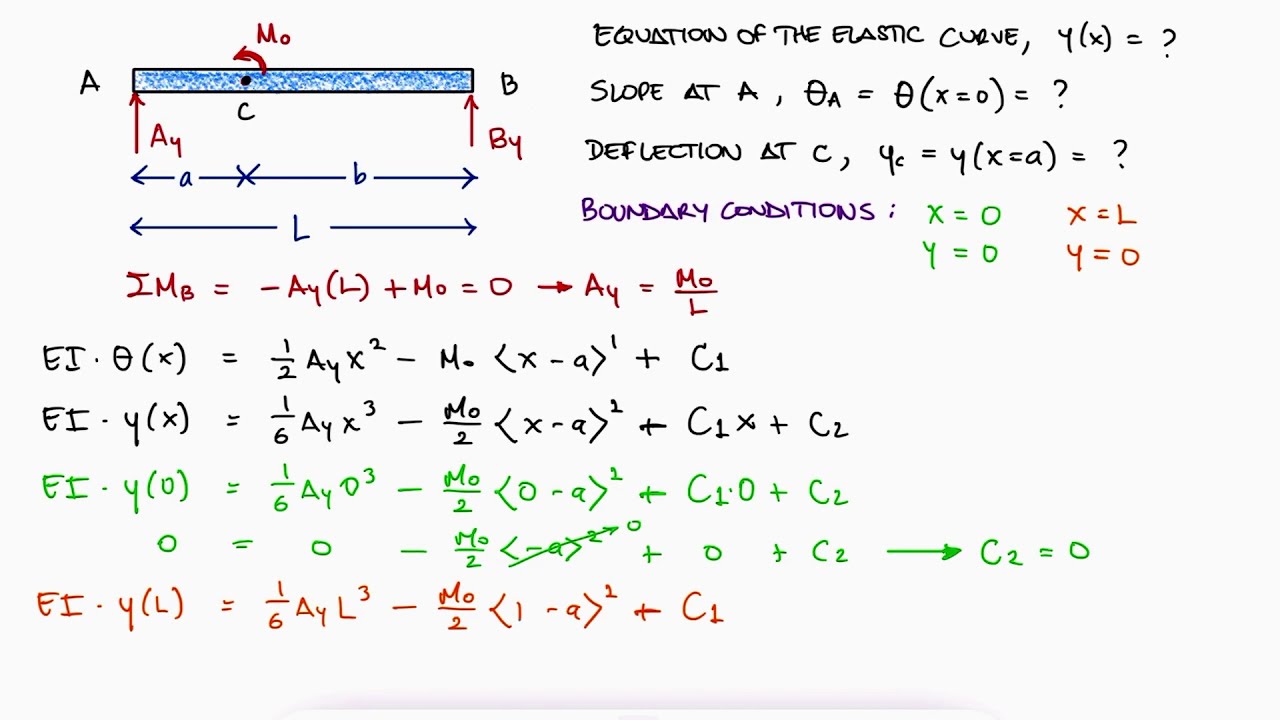 M₀
A
B
C
Ay
By
a
b
L
EQUATION OF THE ELASTIC CURVE, y(x) = ?
SLOPE AT A, θA = θ(x=0) = ?
DEFLECTION AT C, yc = y(x=a) = ?
BOUNDARY CONDITIONS: x = 0 x = L
y = 0 y = 0
ΣMB = -Ay(L) + M₀ = 0 → Ay = M₀/L
EI · θ(x) = 1/2 Ay x² - M₀ ⟨x - a⟩¹ + C₁
EI · y(x) = 1/6 Ay x³ - M₀/2 ⟨x - a⟩² + C₁x + C₂
EI · y(0) = 1/6 Ay 0³ - M₀/2 ⟨0 - a⟩² + C₁·0 + C₂
0 = 0 - M₀/2 ⟨-a⟩² 0 + 0 + C₂ → C₂ = 0
EI · y(L) = 1/6 Ay L³ - M₀/2 ⟨1 - a⟩² + C₁